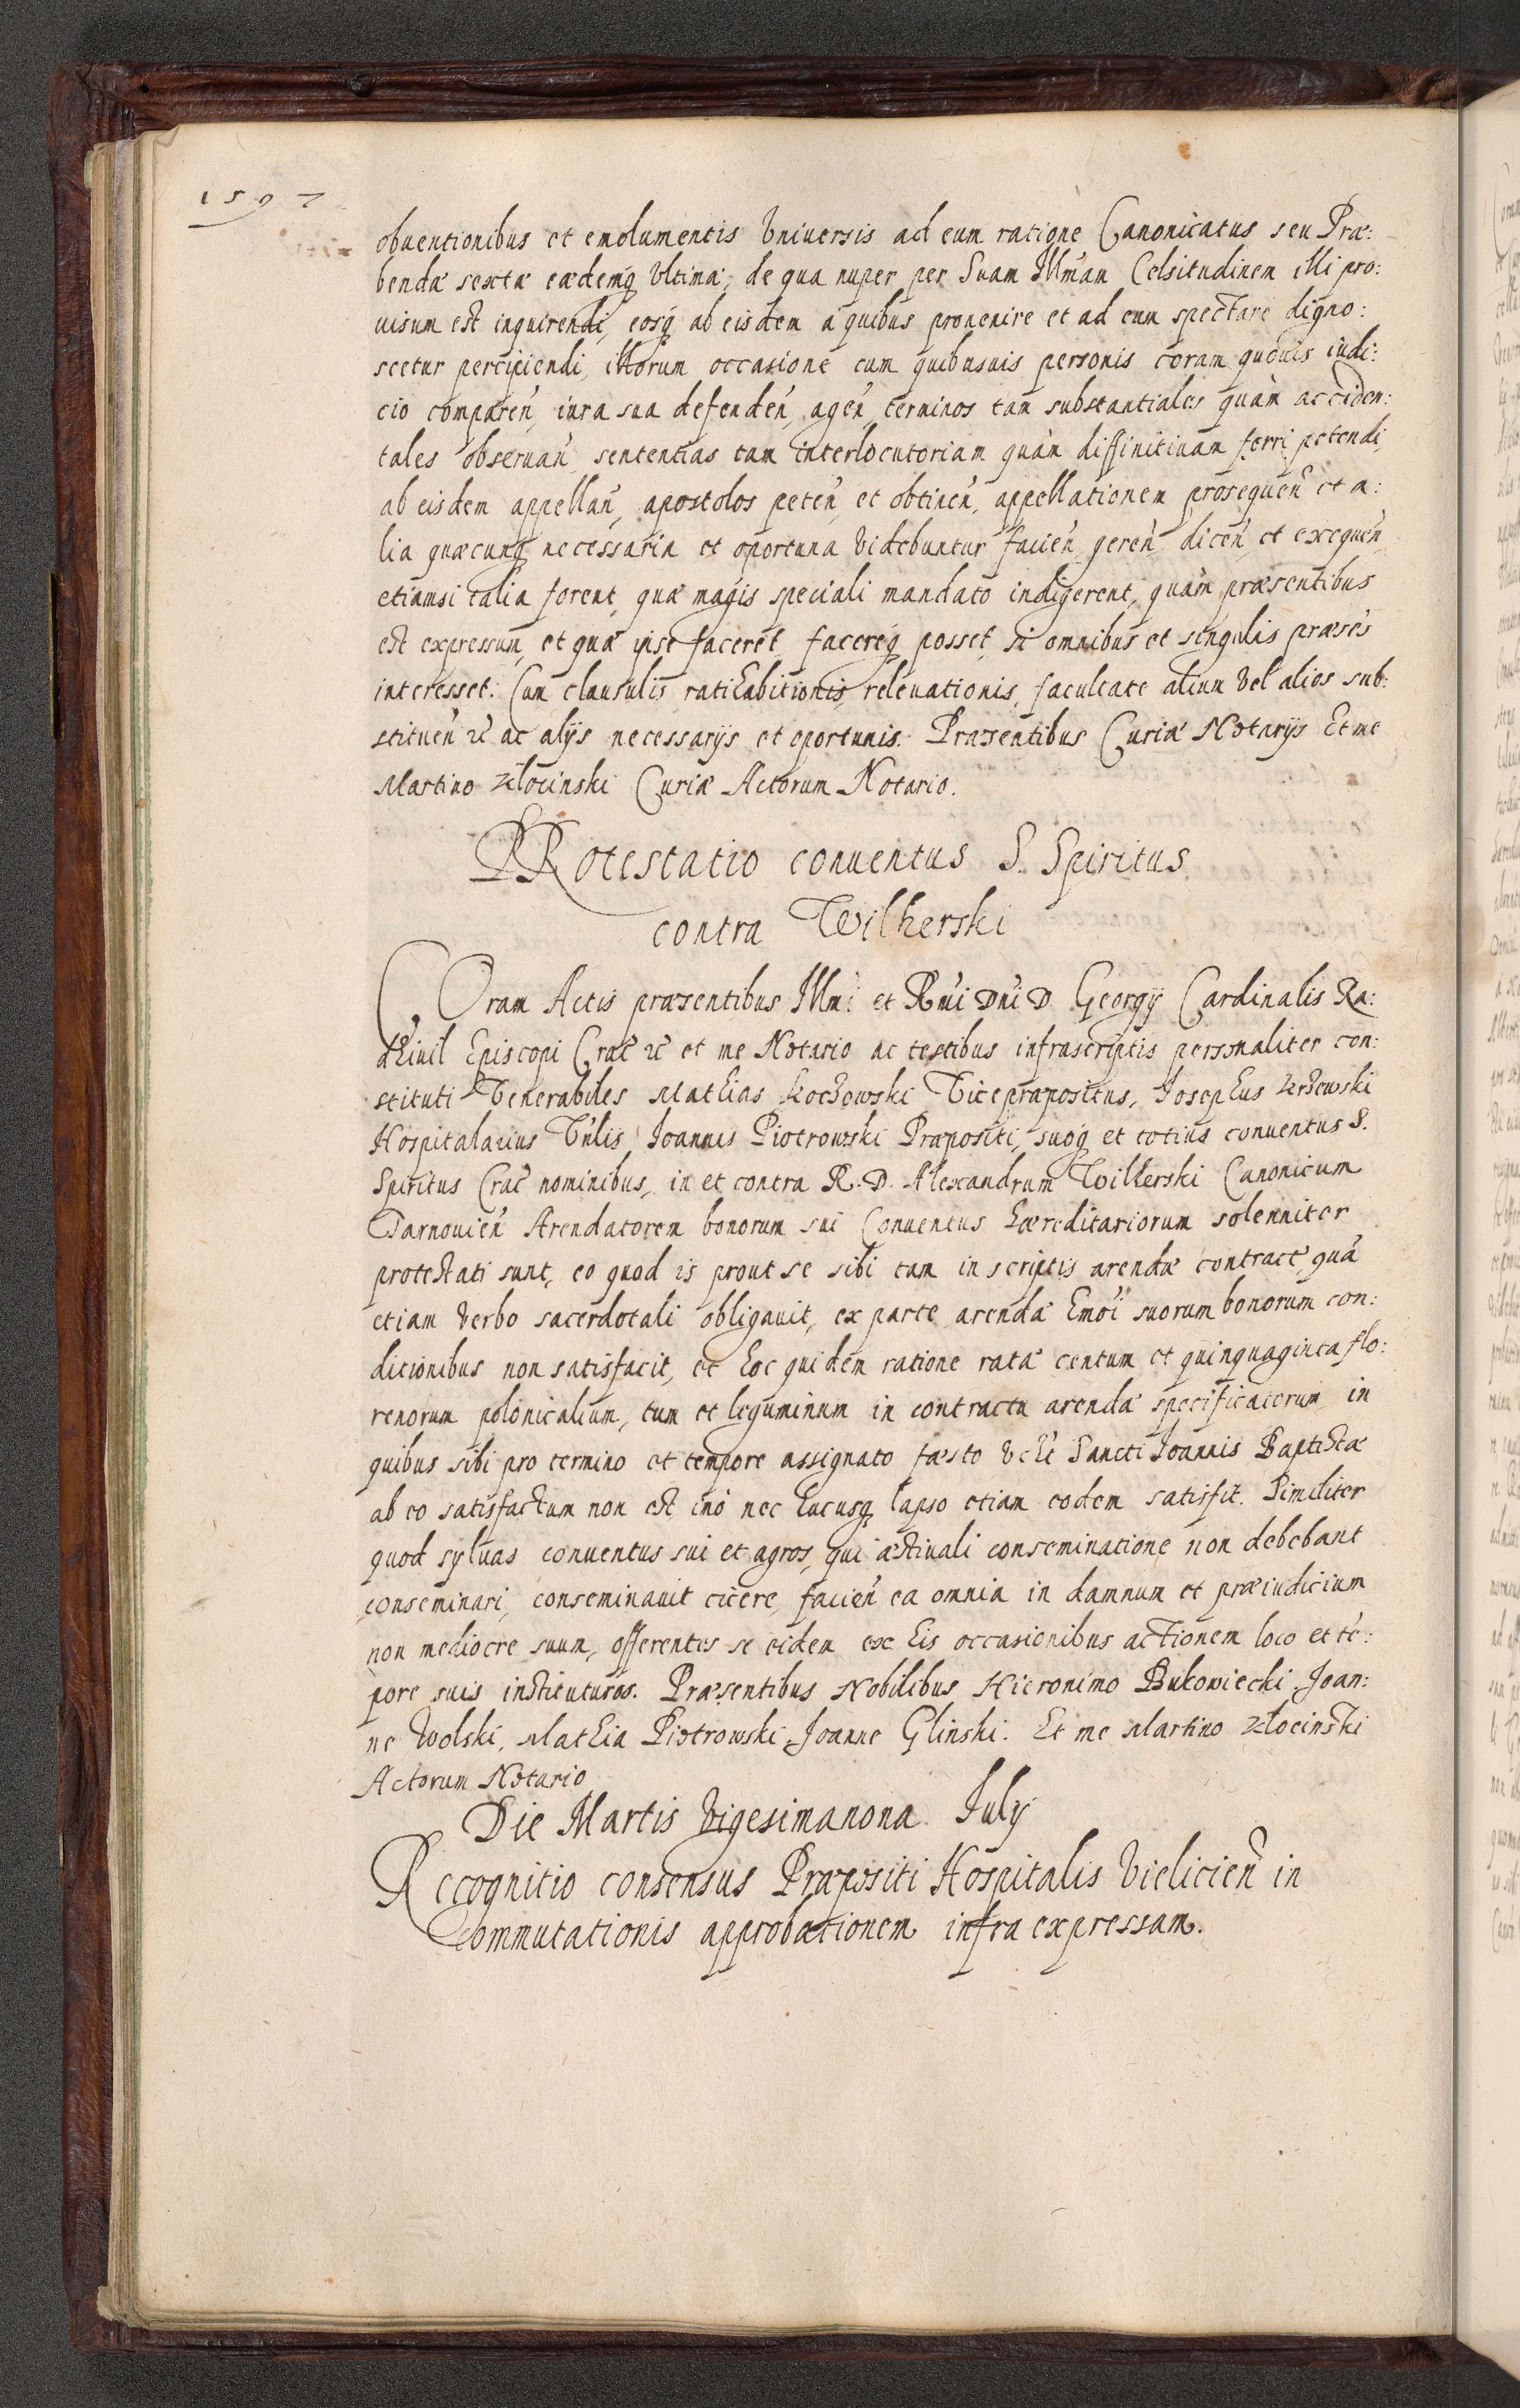 1597
obuentionibus et emolumentis Vniuersis ad eum ratione Canonicatus seu Præ:
bendæ sextæ eædemq́ Vltimæ, de qua nuper per Suam Illm̃am Celsitudinem illi pro:
uisum est inquirendi, eosq́ ab eisdem a quibus prouenire et ad eum spectare digno:
scetur percipiendi, illorum occasione cum quibusuis personis coram quouis iudi:
cio comparen̄, iura sua defenden̄, agen̄, terminos tam substantiales quàm acciden:
tales obseruan̄, sententias tam interlocutoriam quàm diffinitiuam ferri petendi,
ab eisdem appellan̄, apostolos peten̄, et obtinen̄, appellationem prosequen̄ et a:
lia quæcunq́ necessaria et oportuna Videbuntur facien̄, geren̄, dicen̄, et exequen̄,
etiamsi talia forent, quæ magis speciali mandato indigerent, quàm præsentibus
est expressum, et quæ ipse faceret, facereq́ posset, si omnibus et singulis præsẽs
interesset. Cum clausulis ratihabitionis, releuationis, facultate alium Vel alios sub:
stituen̄ &c ac alijs necessarijs et oportunis. Præsentibus Curiæ Notarijs Et me
Martino Złocinski Curiæ Actorum Notario.
PRotestatio conuentus S. Spiritus
contra Wilkerski
COram Actis præsentibus Illmi et Rmi Dni D. Georgij Cardinalis Ra:
dziuil Episcopi Crac̄ &c et me Notario ac testibus infrascriptis personaliter con:
stituti Venerabiles Mathias Kochowski Vicepræpositus, Josephus
Hospitalarius Vn̄lis Joannis Piotrowski Præpositi, suoq́ et totius conuentus S.
Spiritus Crac̄ nominibus, in et contra R. D. Alexandrum Wilkerski Canonicum
Tarnouien̄ Arendatorem bonorum sui Conuentus hæreditariorum solenniter
protestati sunt, eo quod is prout se sibi tam in scriptis arendæ contracte, quā
etiam Verbo sacerdotali obligauit, ex parte arendæ Em̃oi suorum bonorum con:
ditionibus non satisfacit, et hoc quidem ratione ratæ centum et quinquaginta flo:
renorum polonicalium, tum et leguminum in contractu arendæ specificatorum, in
quibus sibi pro termino et tempore assignato fæsto Sancti Joannis Baptistæ
ab eo satisfactum non est imò nec hucusq́ lapso etiam eodem satisfit. Similiter
quod syluas conuentus sui et agros, qui æstiuali conseminatione non debebant
conseminari, conseminauit cicere, facien̄ ea omnia in damnum et præiudicium
non mediocre suum, offerentes se eidem ex his occasionibus actionem loco et tē:
pore suis instituturos. Præsentibus Nobilibus Hieronimo Bukowiecki, Joan:
ne Wolski, Mathia Piotrowski, Joanne Glinski. Et me Martino Złocinski
Actorum Notario
Die Martis Vigesimanona July
Recognitio consensus Præpositi Hospitalis Vielicien̄ in
Commutationis approbationem infra expressam.